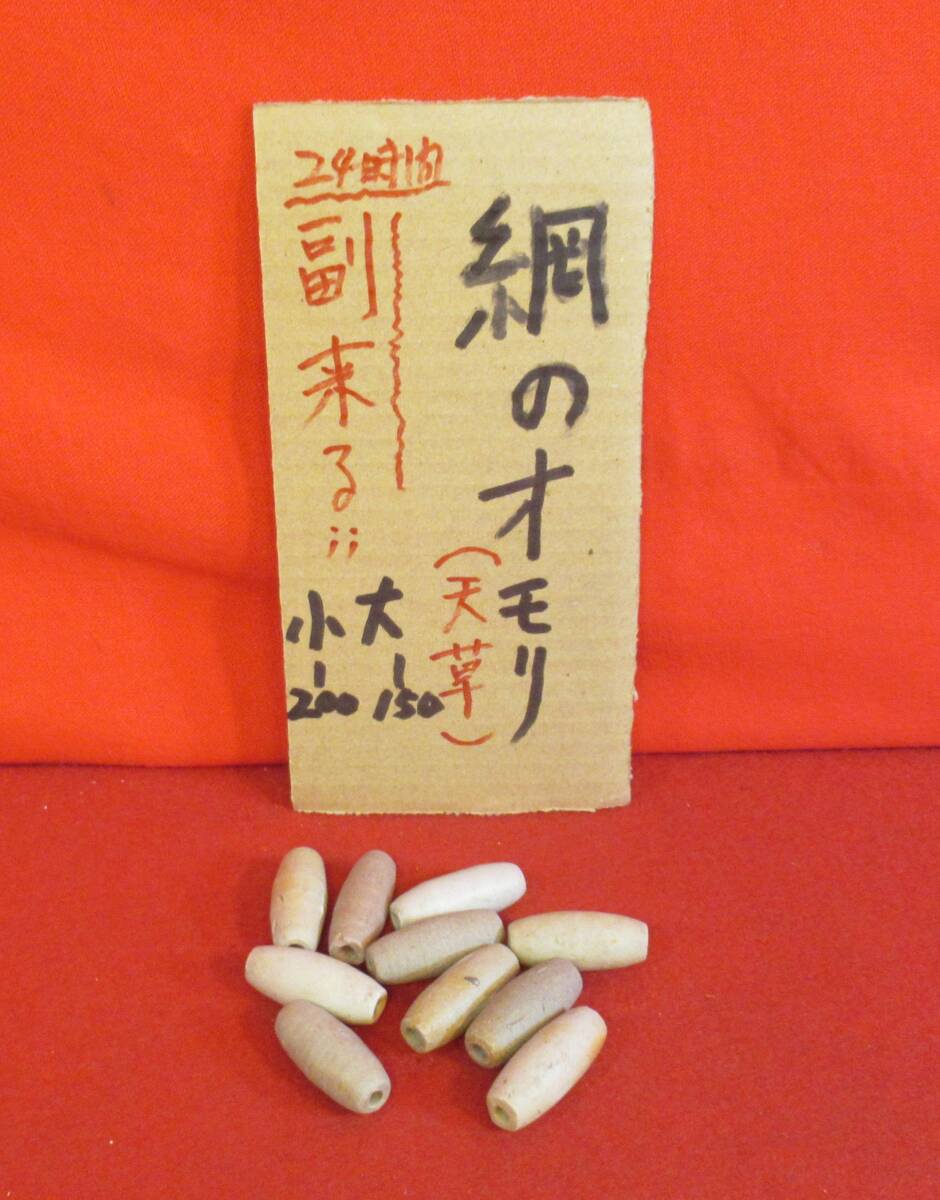 網のオモリ
(天草)
24時間
副来る!!
大-150
小-200